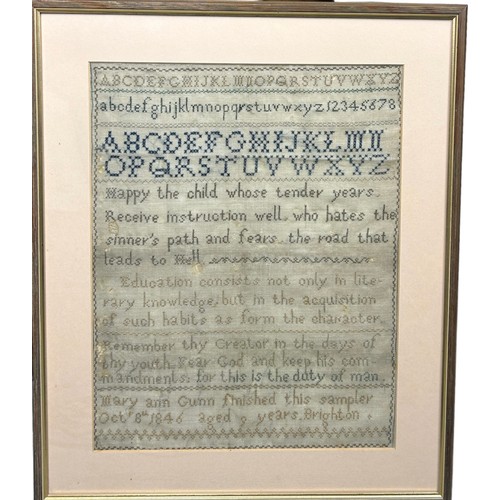 ABCDEFGHIJKLMNOPQRSTUVWXYZ
abcdefghijklmnopqrstuvwxyz12345678
ABCDEFGHIJKLMN
OPQRSTUVWXYZ
Happy the child whose tender years
Receive instruction well who hates the
sinner's path and fears the road that
leads to Hell
Education consists not only in lite-
rary knowledge, but in the acquisition
of such habits as form the character.
Remember thy Creator in the days of
thy youth Fear God and keep his com-
mandments: for this is the duty of man.
Mary ann Gunn finished this sampler
Oct 8th 1846 aged 9 years, Brighton.